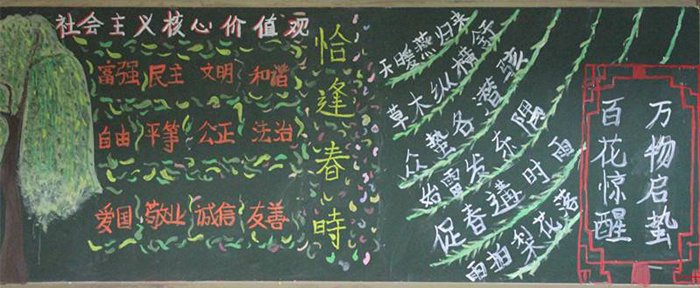 社会主义核心价值观
富强 民主 文明 和谐
自由 平等 公正 法治
爱国 敬业 诚信 友善
恰逢春時
天暖燕归来
草木纵横舒
众蛰各潜骇
始雷发东隅
促春遘时雨
雨拍梨花落
万物启蛰
百花惊醒